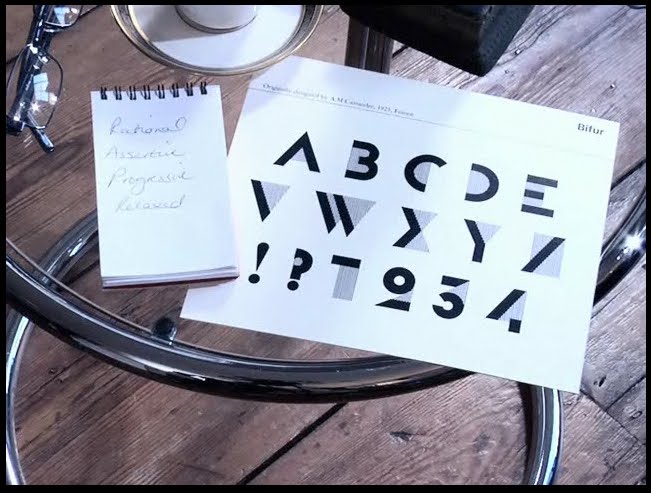 Rational
Assertive
Progressive
Relaxed
Originally designed by A.M.Cassandre, 1929, France
Bifur
ABCDE
VWXYZ
!?1234